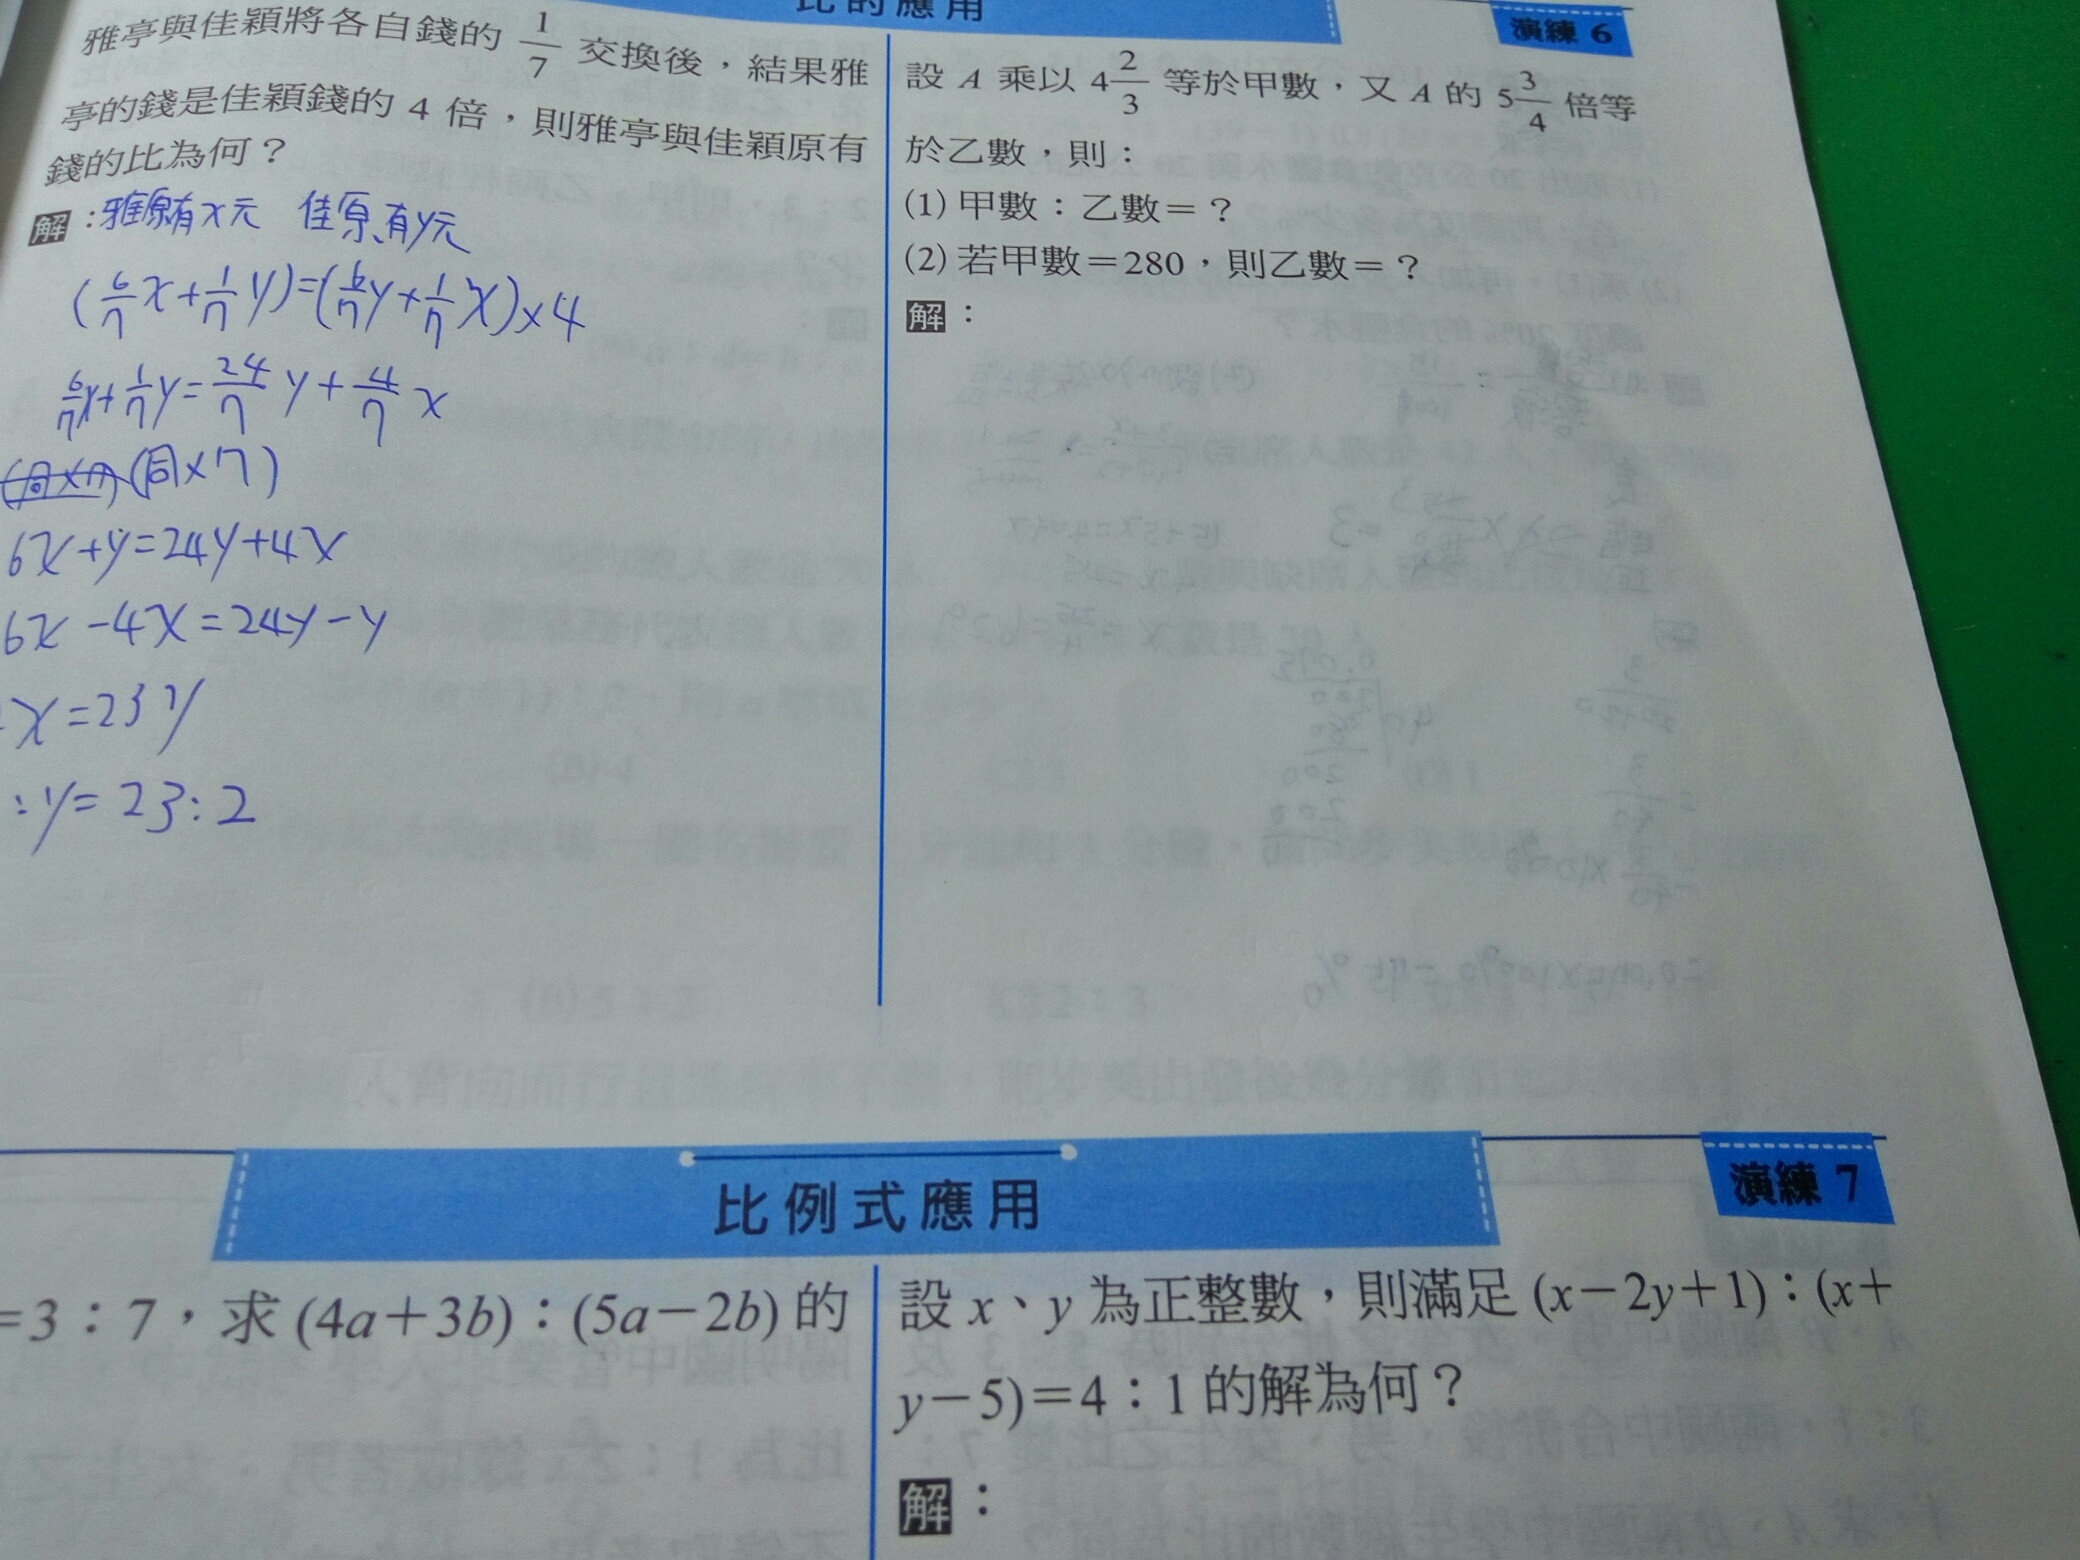 比的應用
演練 6
雅亭與佳穎將各自錢的 1/7 交換後，結果雅
亭的錢是佳穎錢的 4 倍，則雅亭與佳穎原有
錢的比為何？
解：雅原有x元 佳原有y元
(6/7x+1/7y)=(6/7y+1/7x)×4
6/7x+1/7y=24/7y+4/7x
(同×7)
6x+y=24y+4x
6x-4x=24y-y
x=23y
:y=23:2
設 A 乘以 4 2/3 等於甲數，又 A 的 5 3/4 倍等
於乙數，則：
(1) 甲數：乙數＝？
(2) 若甲數＝280，則乙數＝？
解：
比例式應用
演練 7
=3：7，求 (4a+3b)：(5a-2b) 的
設 x、y 為正整數，則滿足 (x-2y+1)：(x+
y-5)=4：1 的解為何？
解：